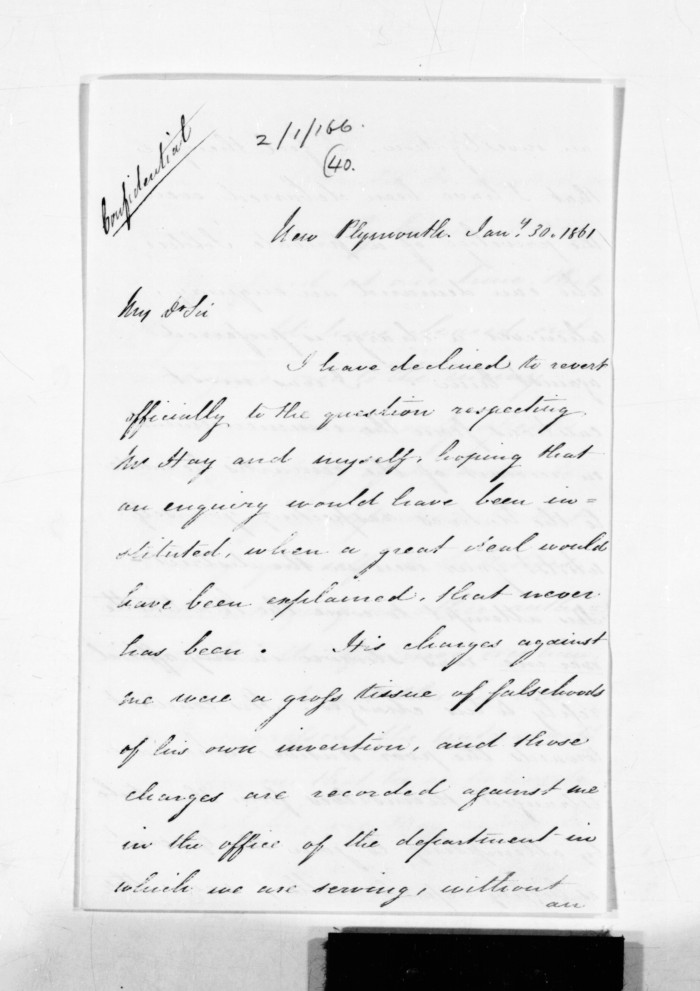 Confidential
2/1/166.
(40.
New Plymouth. Jany. 30. 1861
My Dr Sir
I have declined to revert
officially to the question respecting
Mr Hay and myself, hoping that
an enquiry would have been in=
stituted, when a great deal would
have been explained, that never
has been. His charges against
me were a gross tissue of falsehoods
of his own invention, and those
charges are recorded against me
in the office of the department in
which we are serving, without
an